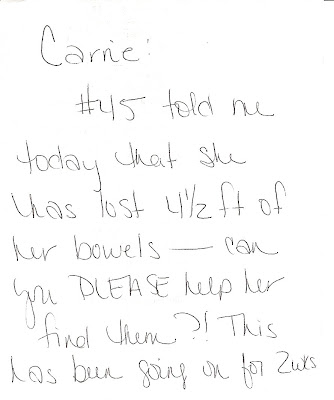 Carrie:
#45 told me
today that she
has lost 4 1/2 ft of
her bowels — can
you PLEASE help her
find them?! This
has been going on for 2wks